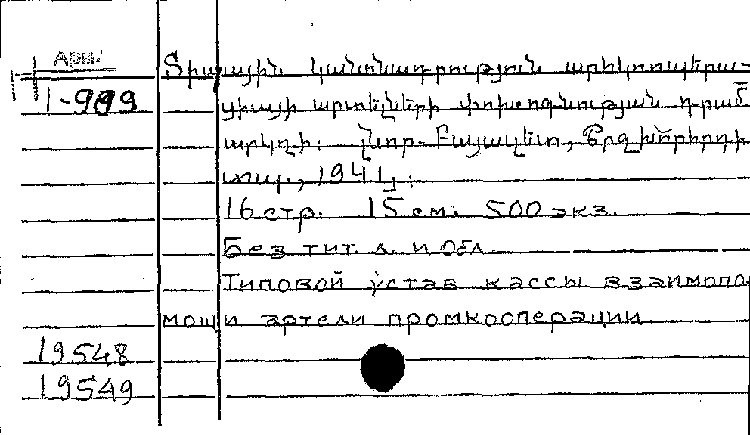 Арм.
1-989
Տիպային կանոնադրություն արհկոոպերա-
ցիայի արտելների փոխօգնության դրամ
արկղի: Նոր-Բայազետ, Շրջխորհրդի
տպ., 1941 թ.
16 стр. 15 см. 500 экз.
Без тит. л. и обл.
Типовой устав кассы взаимопо
мощи артели промкооперации
19548
19549